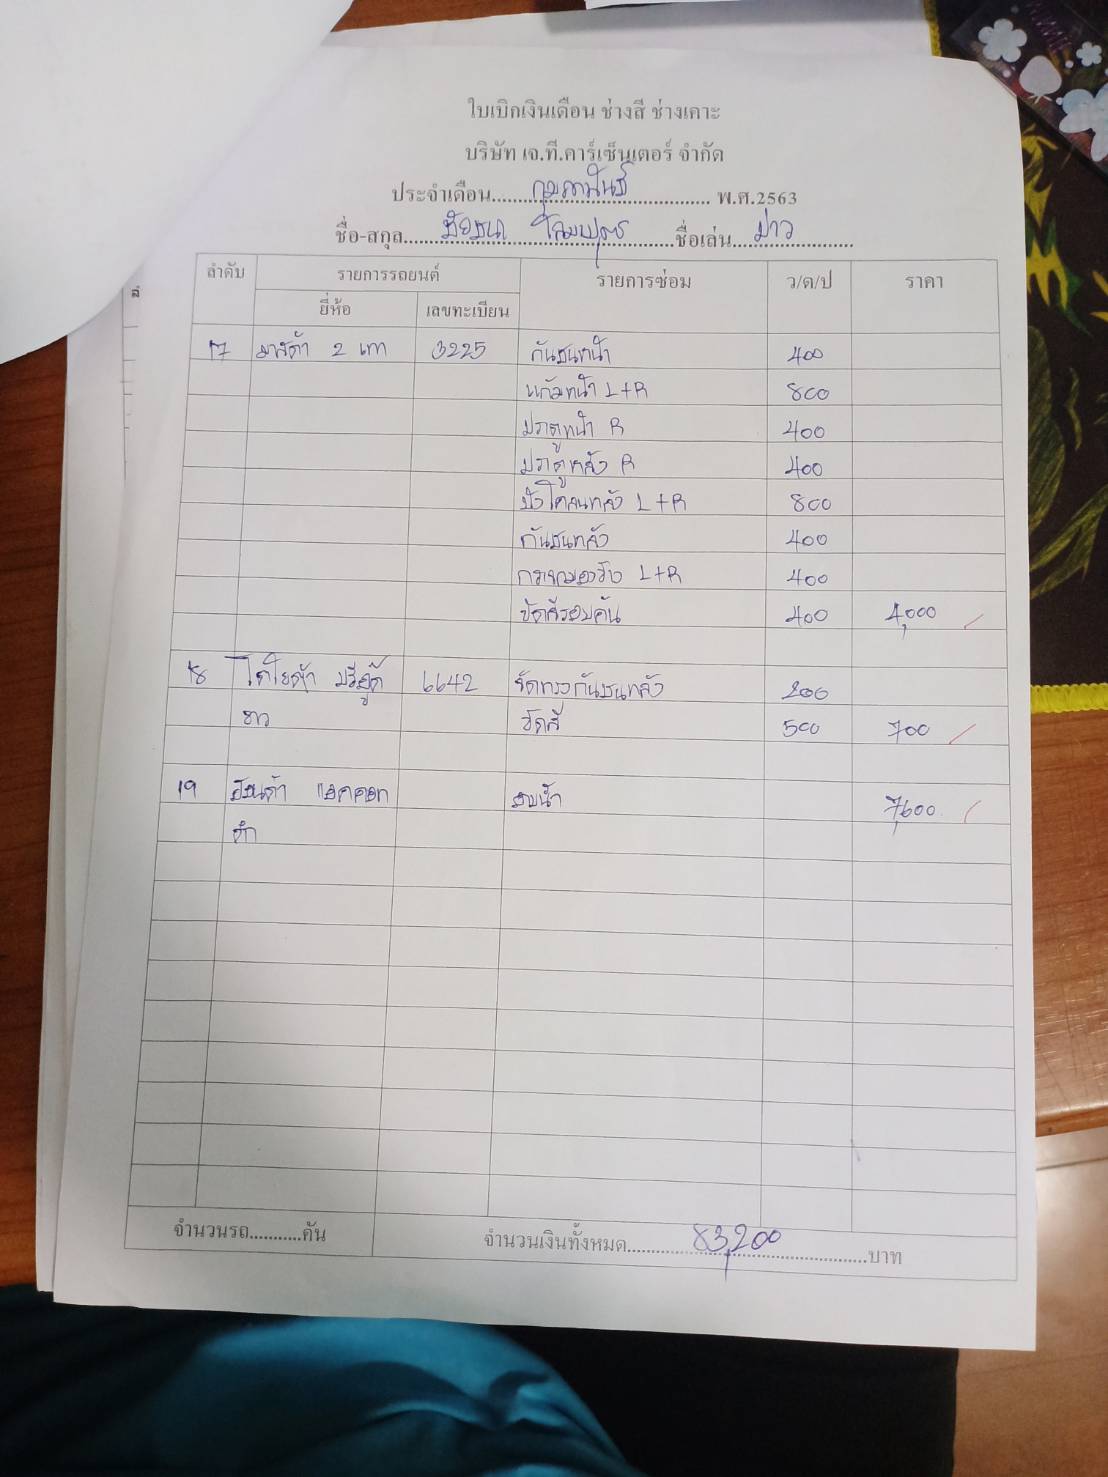 ใบเบิกเงินเดือน ช่างสี ช่างเคาะ
บริษัท เจ.ที.คาร์เซ็นเตอร์ จำกัด
ประจำเดือน กุมภาพันธ์ พ.ศ.2563
ชื่อ-สกุล ชื่อเล่น ม่าว
ลำดับ รายการรถยนต์ รายการซ่อม ว/ด/ป ราคา
ยี่ห้อ เลขทะเบียน
17 มาสด้า 2 เทา 3225 กันชนหน้า 400
แก้มหน้า L+R 800
ประตูหน้า R 400
ประตูหลัง R 400
บังโคลนหลัง L+R 800
กันชนหลัง 400
กระจกมองข้าง L+R 400
ขัดสีรอบคัน 400 4,000
18 โตโยต้า 6642 กันชนหลัง 200
ขาว ขัดสี 500 700
19 ฮอนด้า แอคคอท อบน้ำ 7,600
ดำ
จำนวนรถ...........คัน จำนวนเงินทั้งหมด 83,200 บาท